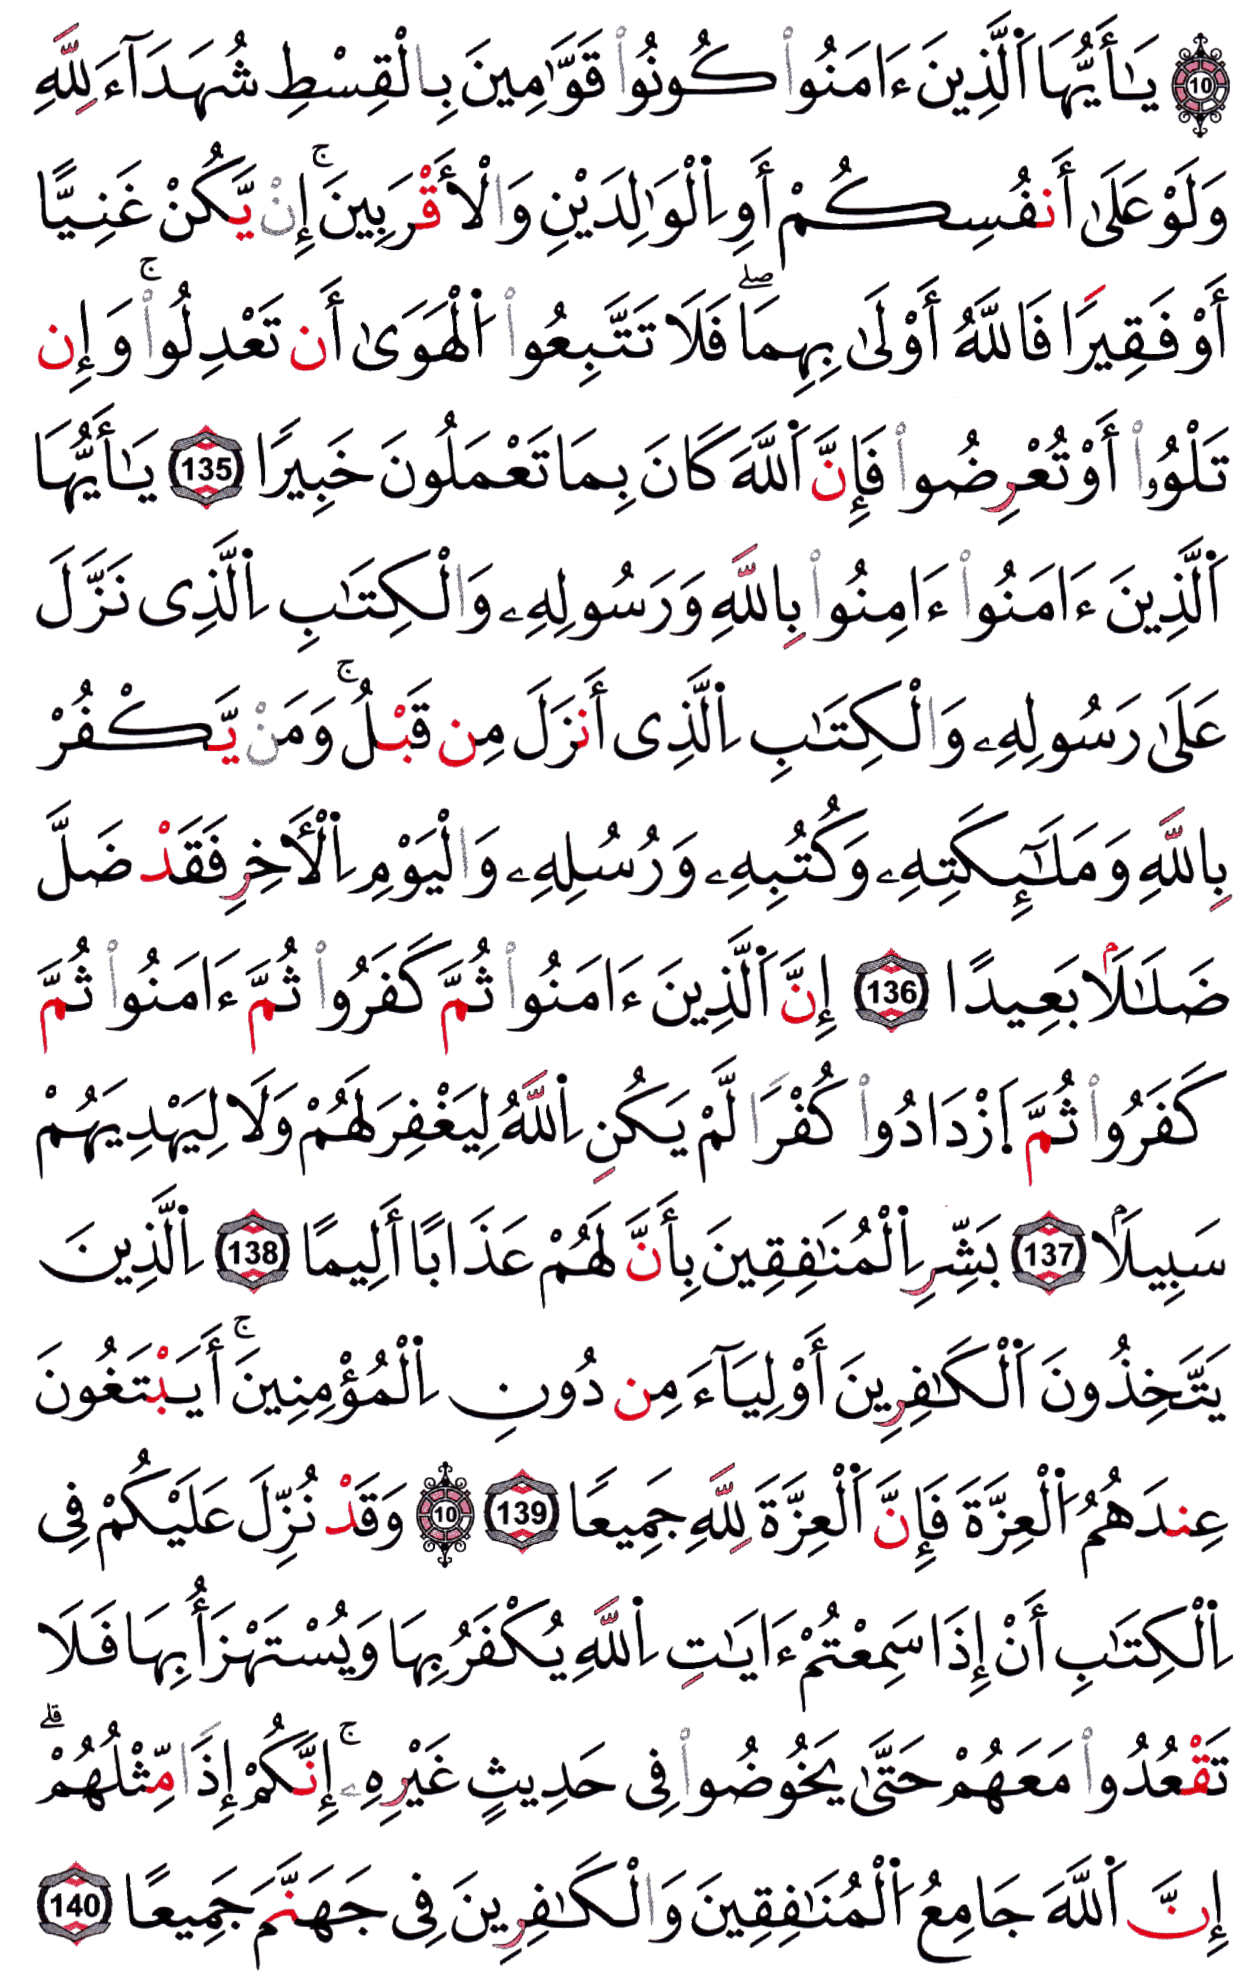 10 يَٰٓأَيُّهَا اَ۬لَّذِينَ ءَامَنُواْ كُونُواْ قَوَّٰمِينَ بِالْقِسْطِ شُهَدَآءَ لِلَّهِ
وَلَوْ عَلَىٰٓ أَنفُسِكُمْ أَوِ اِ۬لْوَٰلِدَيْنِ وَالْأَقْرَبِينَۚ إِنْ يَّكُنْ غَنِيًّا
أَوْ فَقِيرًا فَاللَّهُ أَوْلَىٰ بِهِمَاۖ فَلَا تَتَّبِعُواْ اُ۬لْهَوَىٰٓ أَن تَعْدِلُواْۚ وَإِن
تَلْوُۥٓاْ أَوْ تُعْرِضُواْ فَإِنَّ اَ۬للَّهَ كَانَ بِمَا تَعْمَلُونَ خَبِيرًا 135 يَٰٓأَيُّهَا
اَ۬لَّذِينَ ءَامَنُوٓاْ ءَامِنُواْ بِاللَّهِ وَرَسُولِهِۦ وَالْكِتَٰبِ اِ۬لَّذِى نَزَّلَ
عَلَىٰ رَسُولِهِۦ وَالْكِتَٰبِ اِ۬لَّذِىٓ أَنزَلَ مِن قَبْلُۚ وَمَنْ يَّكْفُرْ
بِاللَّهِ وَمَلَٰٓئِكَتِهِۦ وَكُتُبِهِۦ وَرُسُلِهِۦ وَالْيَوْمِ اِ۬لْأَخِرِ فَقَدْ ضَلَّ
ضَلَٰلَۢا بَعِيدًا 136 إِنَّ اَ۬لَّذِينَ ءَامَنُواْ ثُمَّ كَفَرُواْ ثُمَّ ءَامَنُواْ ثُمَّ
كَفَرُواْ ثُمَّ اَ۪زْدَادُواْ كُفْرًا لَّمْ يَكُنِ اِ۬للَّهُ لِيَغْفِرَ لَهُمْ وَلَا لِيَهْدِيَهُمْ
سَبِيلَۢا 137 بَشِّرِ اِ۬لْمُنَٰفِقِينَ بِأَنَّ لَهُمْ عَذَابًا أَلِيمًا 138 اِ۬لَّذِينَ
يَتَّخِذُونَ اَ۬لْكَٰفِرِينَ أَوْلِيَآءَ مِن دُونِ اِ۬لْمُؤْمِنِينَۚ أَيَبْتَغُونَ
عِندَهُمُ اُ۬لْعِزَّةَ فَإِنَّ اَ۬لْعِزَّةَ لِلَّهِ جَمِيعًا 139 10 وَقَدْ نُزِّلَ عَلَيْكُمْ فِى
اِ۬لْكِتَٰبِ أَنْ إِذَا سَمِعْتُمْ ءَايَٰتِ اِ۬للَّهِ يُكْفَرُ بِهَا وَيُسْتَهْزَأُ بِهَا فَلَا
تَقْعُدُواْ مَعَهُمْ حَتَّىٰ يَخُوضُواْ فِى حَدِيثٍ غَيْرِهِۦٓۚ إِنَّكُمْ إِذًا مِّثْلُهُمْۗ
إِنَّ اَ۬للَّهَ جَامِعُ اُ۬لْمُنَٰفِقِينَ وَالْكَٰفِرِينَ فِى جَهَنَّمَ جَمِيعًا 140